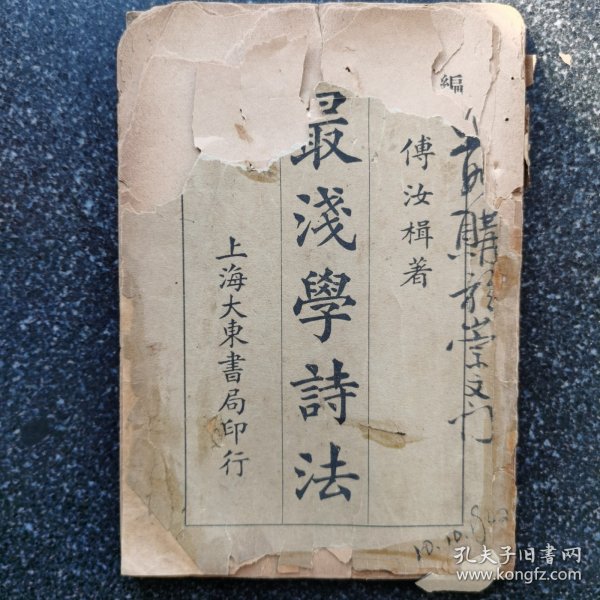 編
傅汝楫著
最淺學詩法
上海大東書局印行
購於崇文门
10.10.
孔夫子旧書网
www.kongfz.com